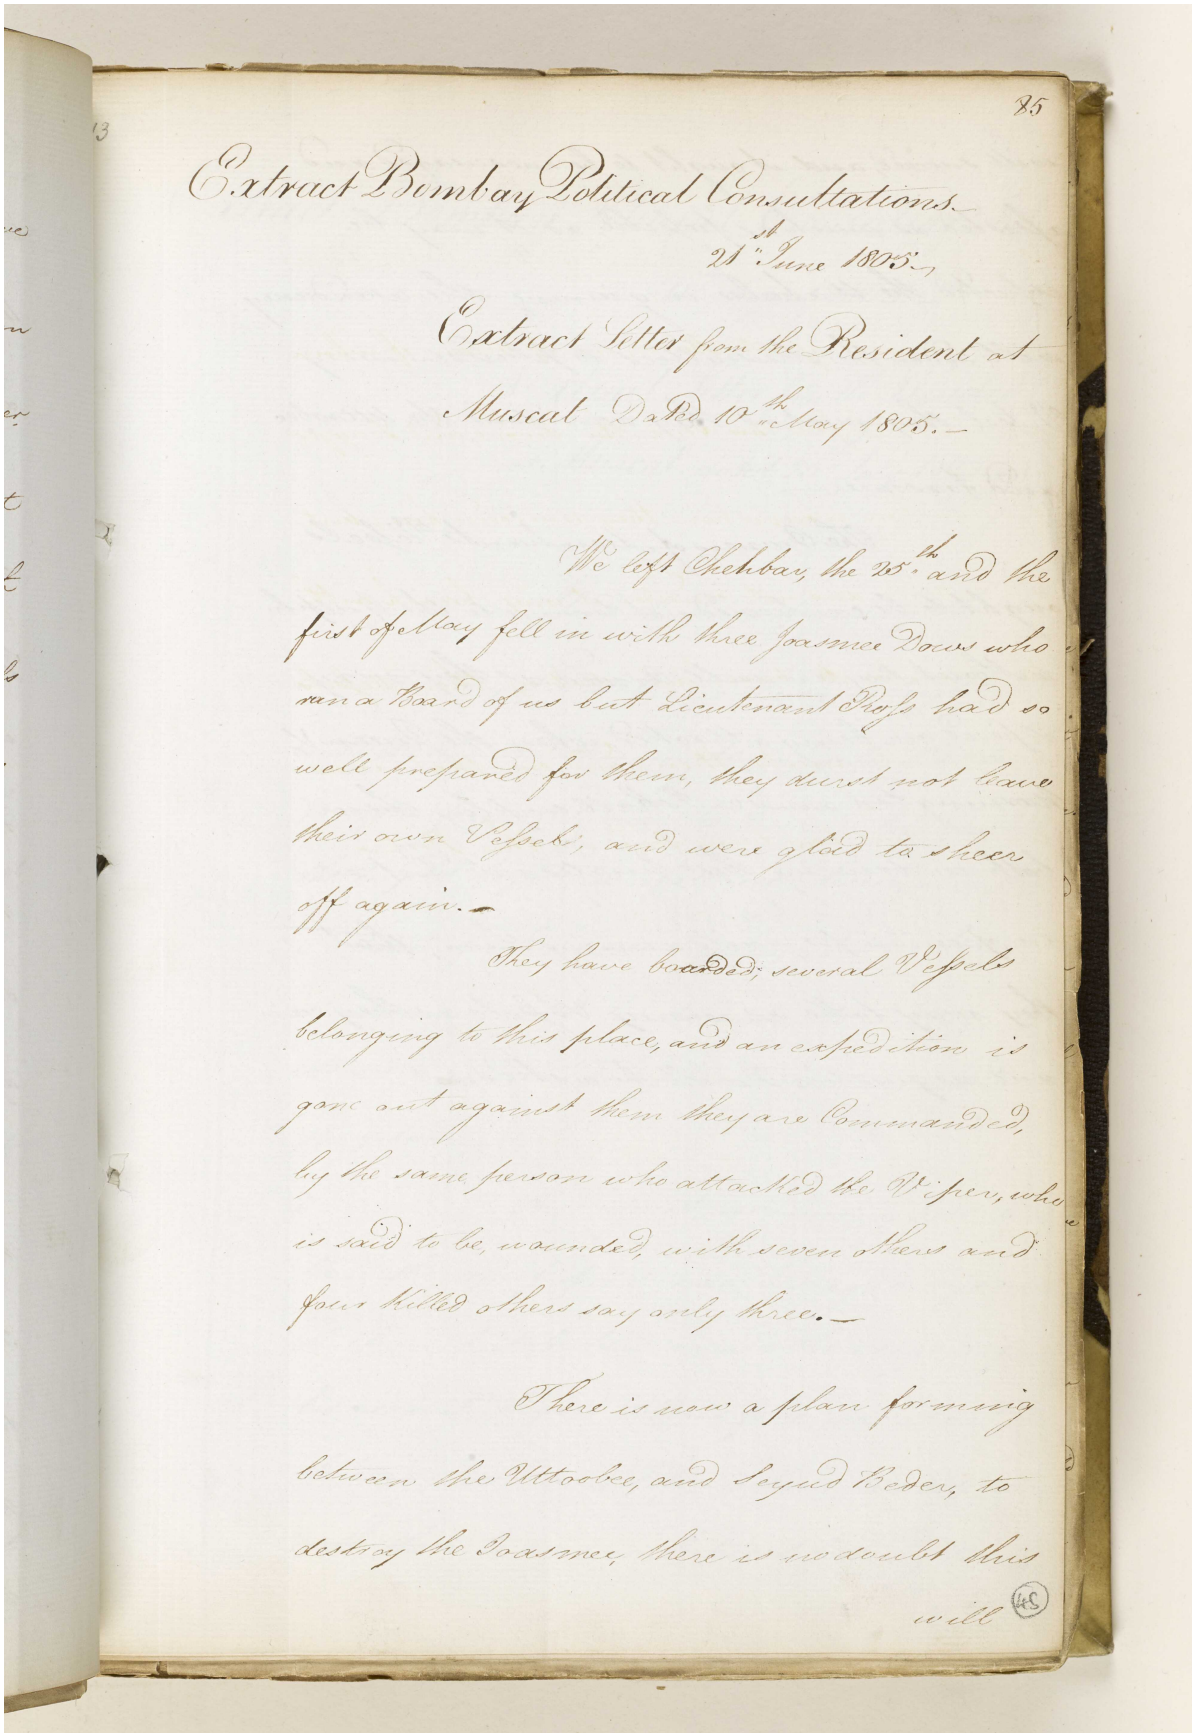 85
Extract Bombay Political Consultations.
21st June 1805.
Extract Letter from the Resident at
Muscat Dated 10th May 1805.—
We left Chehbar, the 25th and the
first of May fell in with three Joasmee Dows who
ran a Board of us but Lieutenant Ross had so
well prepared for them, they durst not leave
their own Vessels, and were glad to sheer
off again.—
They have boarded; several Vessels
belonging to this place, and an expedition is
gone out against them they are Commanded,
by the same person who attacked the Viper, who
is said to be, wounded, with seven others and
four Killed others say only three.—
There is now a plan forming
between the Uttoobee, and Seyud Beder, to
destroy the Joasmee, there is no doubt this
will
45